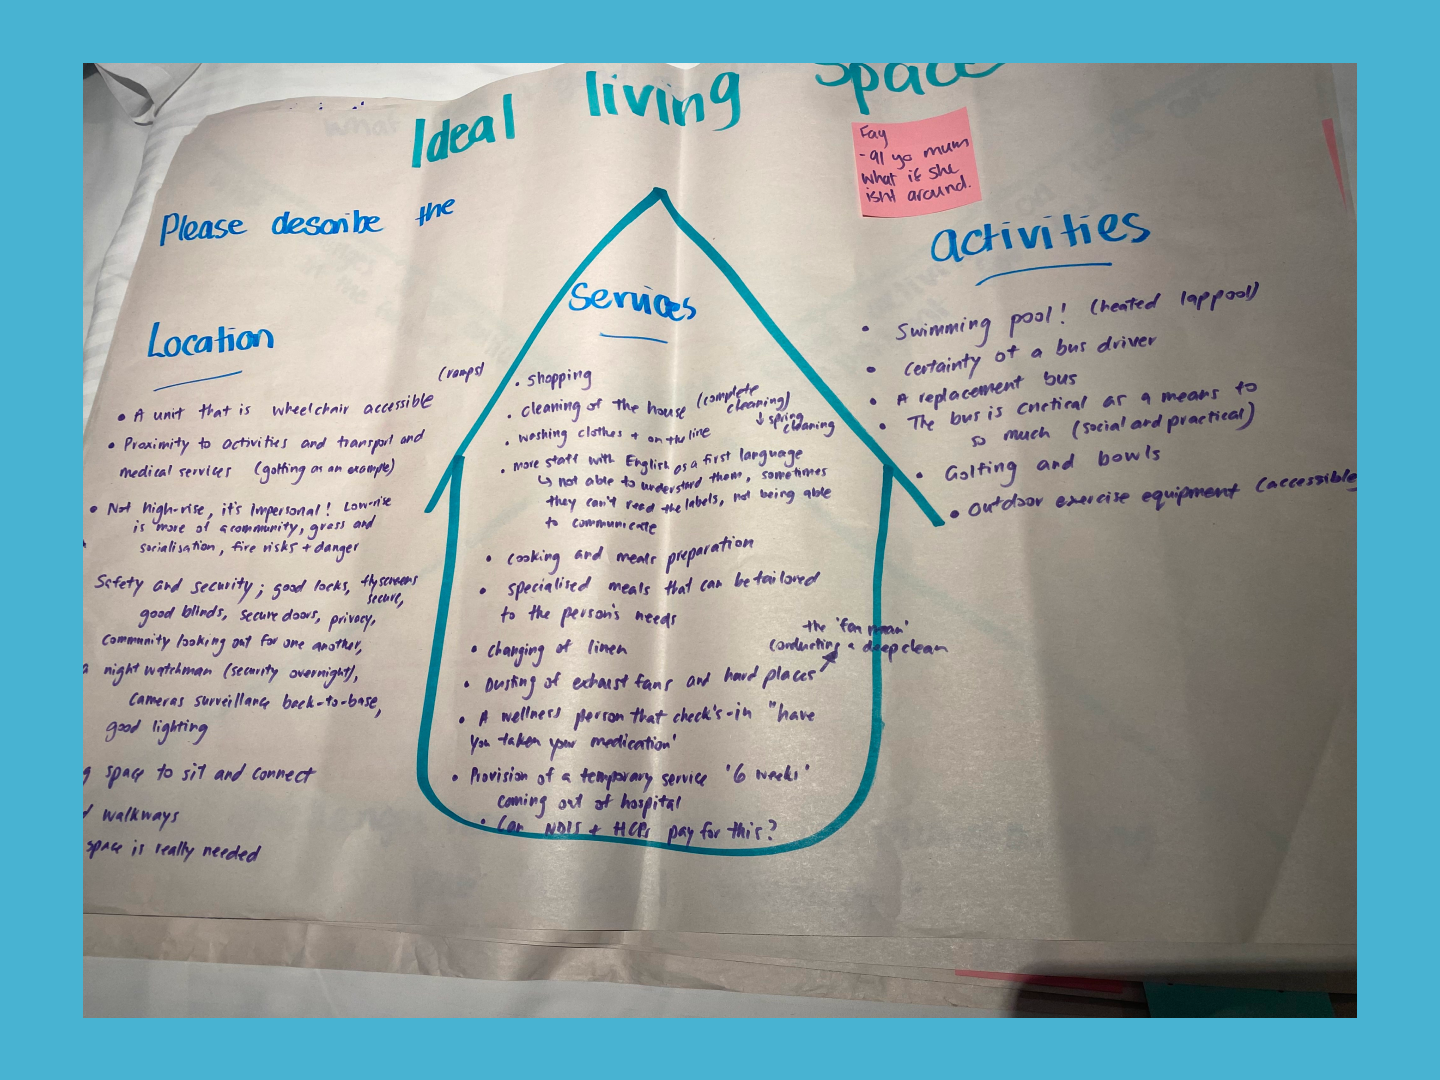 Ideal living space
Fay
- 91 yo mum
what if she
isnt around.
Please describe the
Location
(ramps)
• A unit that is wheelchair accessible
• Proximity to activities and transport and
medical services (golfing as an example)
• Not high-rise, it's impersonal! Low-rise
is more of a community, grass and
socialisation, fire risks + danger
Safety and security; good locks, flyscreens
secure,
good blinds, secure doors, privacy,
community looking out for one another,
a night watchman (security overnight),
cameras surveillance back-to-base,
good lighting
space to sit and connect
walkways
space is really needed
Services
• shopping
• cleaning of the house (complete
cleaning)
↓ spring
cleaning
• washing clothes + on the line
• more staff with English as a first language
↳ not able to understand them, sometimes
they can't read the labels, not being able
to communicate
• cooking and meals preparation
• specialised meals that can be tailored
to the person's needs
• changing of linen
the 'fan man'
conducting a deep clean
• Dusting of exhaust fans and hard places
• A wellness person that check's-in "have
you taken your medication'
• Provision of a temporary service '6 weeks'
coming out of hospital
• Can NDIS + HCPs pay for this?
activities
• Swimming pool! (heated lap pool)
• certainty of a bus driver
• A replacement bus
• The bus is critical as a means to
so much (social and practical)
• Golfing and bowls
• outdoor exercise equipment (accessible